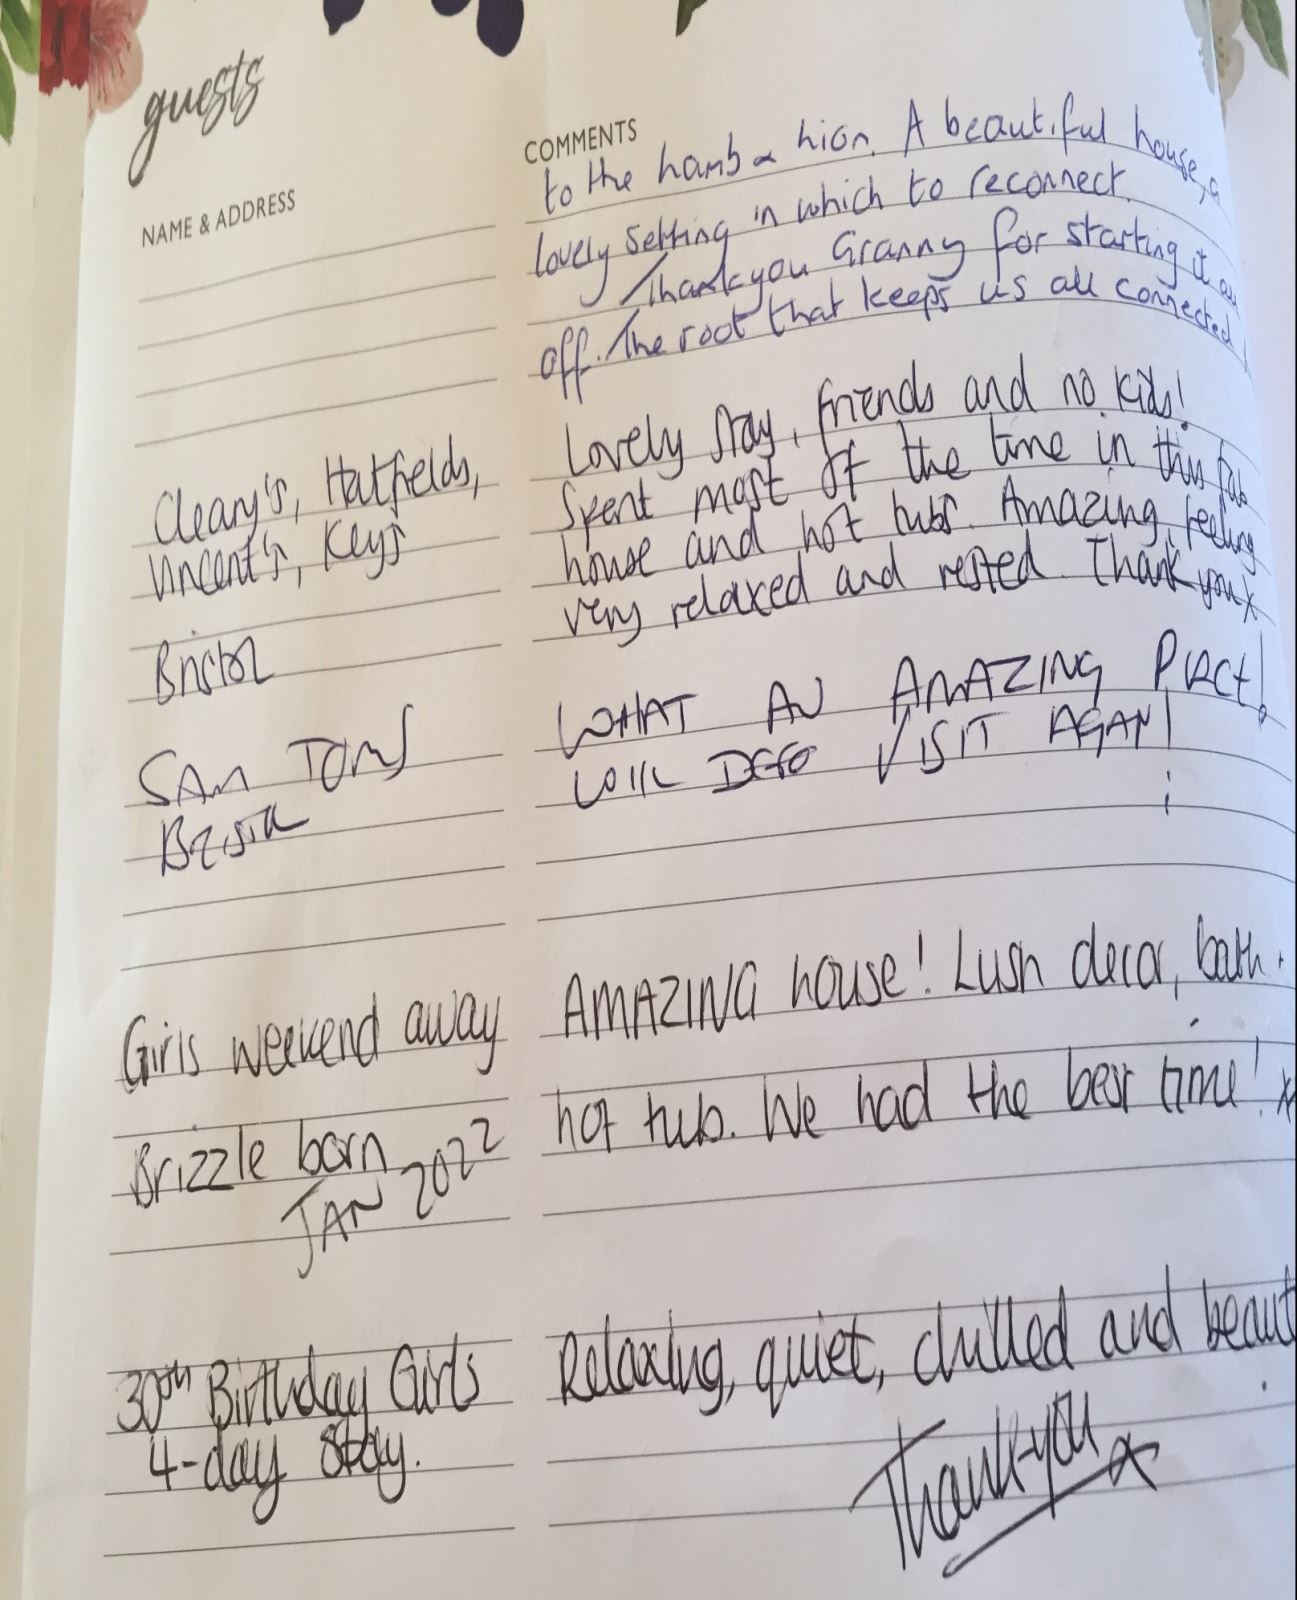 guests
NAME & ADDRESS
COMMENTS
to the hamb & hion. A beautiful house, a
lovely setting in which to reconnect.
Thankyou Granny for starting it all
off. The root that keeps us all connected!
Cleary's, Hatfields,
Vincent's, Keys
Bristol
Lovely stay, friends and no kids!
Spent most of the time in this fab
house and hot tubs. Amazing, feeling
very relaxed and rested. Thank you x
SAM
WHAT AN AMAZING PLACE!
WILL DEFO VISIT AGAIN!
Girls weekend away
Brizzle born
JAN 2022
AMAZING house! Lush decor, bath.
hot tub. We had the best time! x
30th Birthday Girls
4-day stay.
Relaxing, quiet, chilled and beaut
Thank-you x